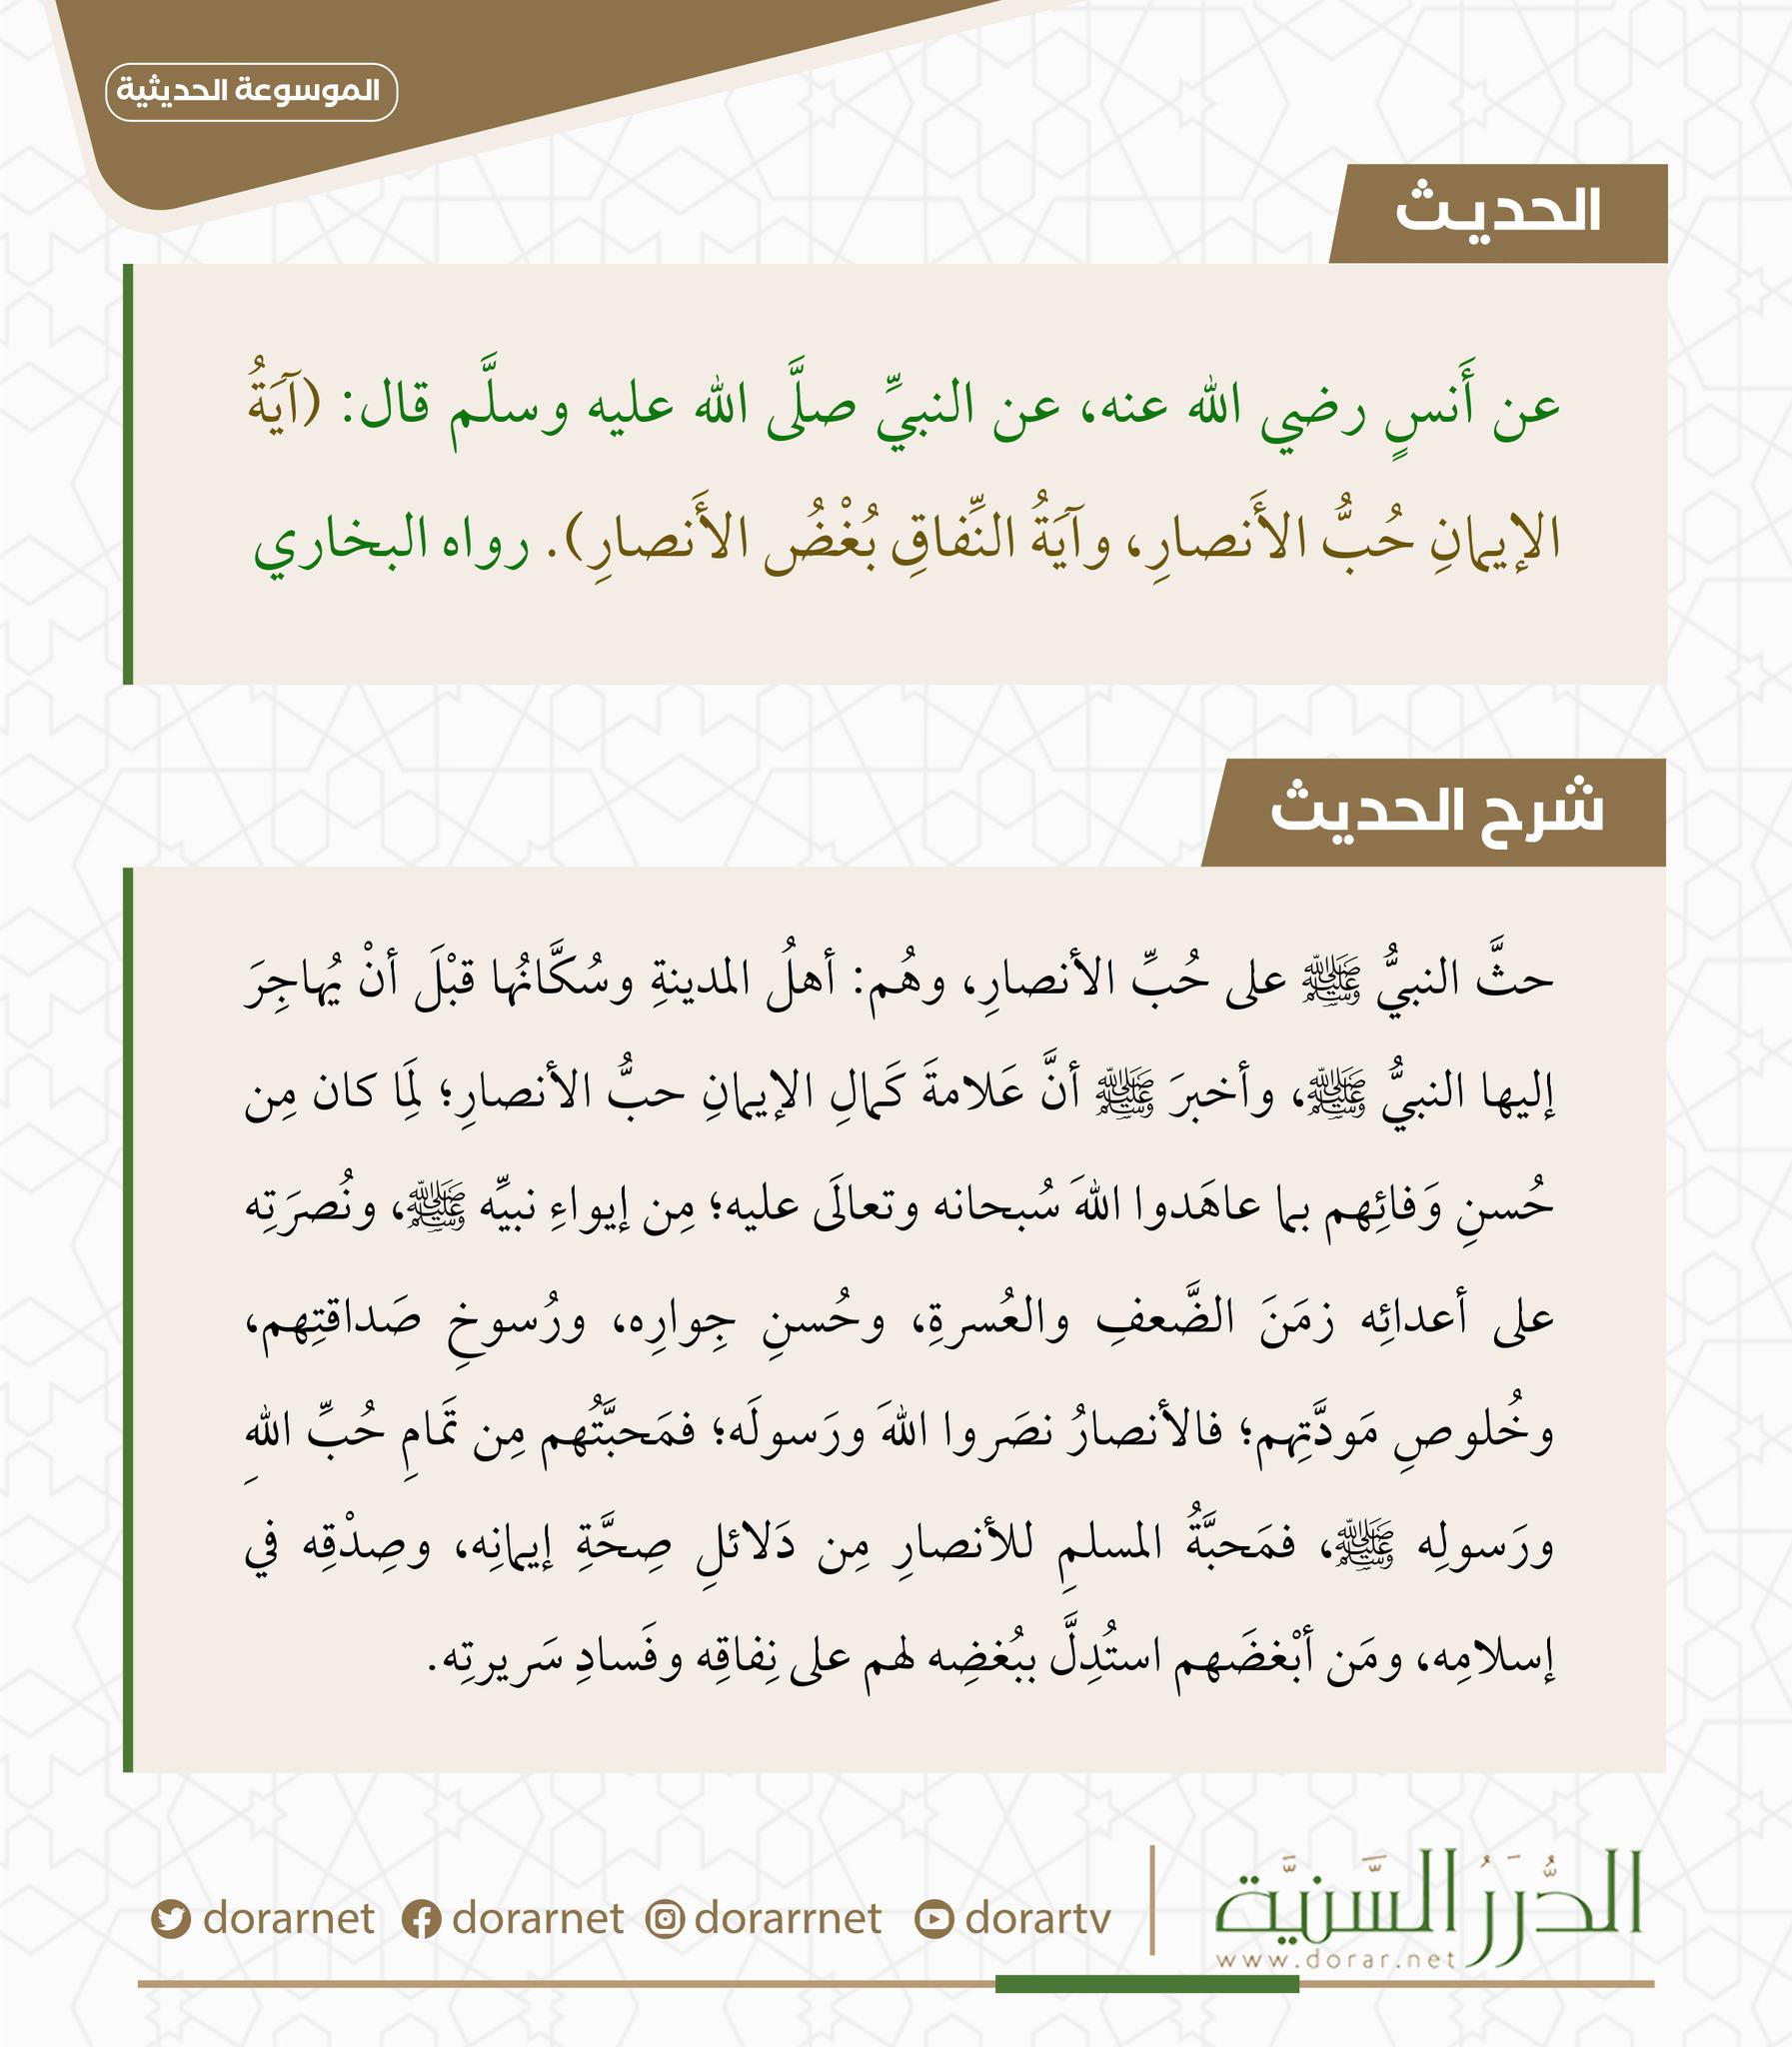 الموسوعة الحديثية
الحديث
عن أَنسٍ رضي الله عنه، عن النبيِّ صلَّى الله عليه وسلَّم قال: (آيَةُ
الإيمانِ حُبُّ الأَنصارِ، وآيَةُ النِّفاقِ بُغْضُ الأَنصارِ). رواه البخاري
شرح الحديث
حثَّ النبيُّ ﷺ على حُبِّ الأنصارِ، وهُم: أهلُ المدينةِ وسُكَّانُها قبْلَ أنْ يُهاجِرَ
إليها النبيُّ ﷺ، وأخبرَ ﷺ أنَّ عَلامةَ كَمالِ الإيمانِ حبُّ الأنصارِ؛ لِمَا كان مِن
حُسنِ وَفائِهم بما عاهَدوا اللهَ سُبحانه وتعالَى عليه؛ مِن إيواءِ نبيِّه ﷺ، ونُصرَتِه
على أعدائِه زمَنَ الضَّعفِ والعُسرةِ، وحُسنِ جِوارِه، ورُسوخِ صَداقتِهم،
وخُلوصِ مَودَّتِهم؛ فالأنصارُ نصَروا اللهَ ورَسولَه؛ فمَحبَّتُهم مِن تَمامِ حُبِّ اللهِ
ورَسولِه ﷺ، فمَحبَّةُ المسلمِ للأنصارِ مِن دَلائلِ صِحَّةِ إيمانِه، وصِدْقِه في
إسلامِه، ومَن أبْغضَهم استُدِلَّ ببُغضِه لهم على نِفاقِه وفَسادِ سَريرتِه.
الدُّرَرُ السَّنِيَّة
www.dorar.net
dorarnet dorarnet dorarrnet dorartv